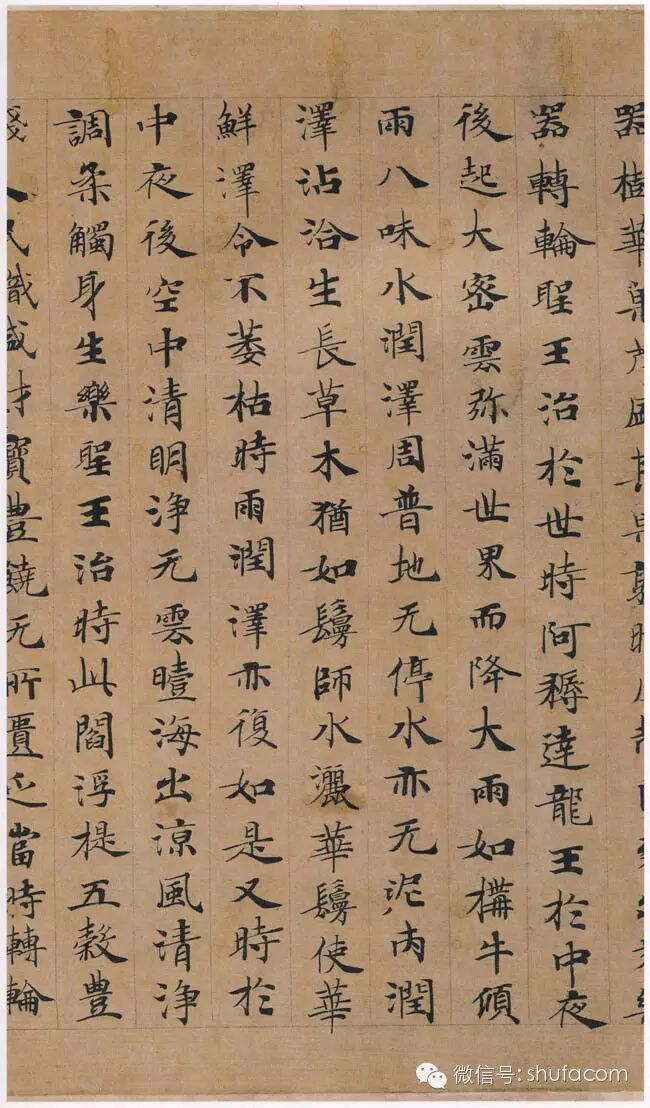 器樹華菓茂盛其果熟時
器轉輪聖王治於世時阿耨達龍王於中夜
後起大密雲弥滿世界而降大雨如構牛頃
雨八味水潤澤周普地无停水亦无泥内潤
澤沾洽生長草木猶如鬘師水灑華鬘使華
鮮澤令不萎枯時雨潤澤亦復如是又時於
中夜後空中清明浄无雲曀海出凉風清浄
調柔觸身生樂聖王治時此閻浮提五穀豊
賤人民熾盛財寶豊饒无所匱乏當時轉輪
微信号: shufacom